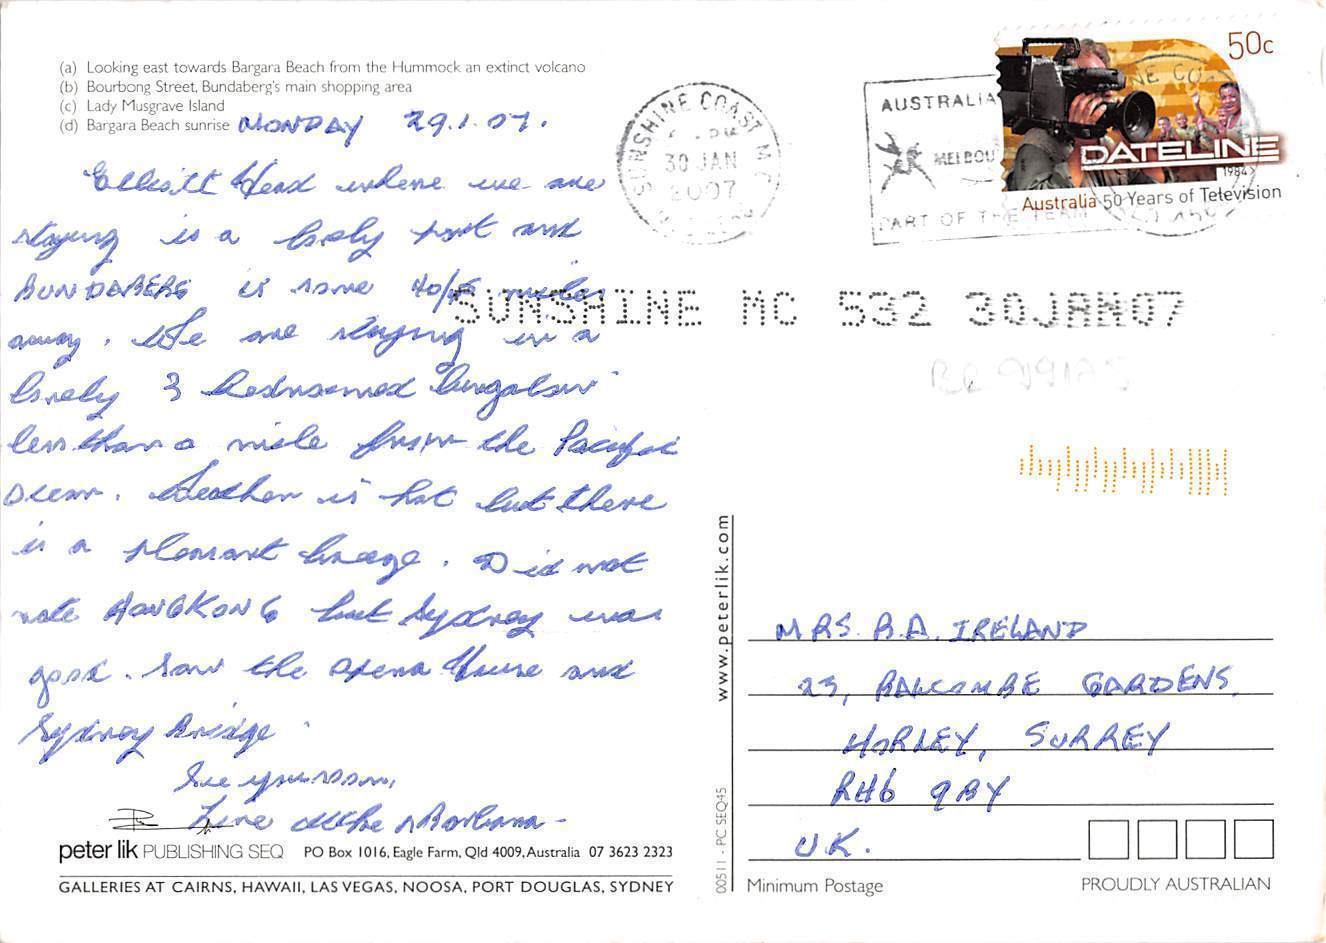 (a) Looking east towards Bargara Beach from the Hummock an extinct volcano
(b) Bourbong Street, Bundaberg's main shopping area
(c) Lady Musgrave Island
(d) Bargara Beach sunrise
MONDAY 29.1.07.
Elliott Head where we are
staying is a lovely port and
BUNDABERG is some 10/15 miles
away. We are staying in a
lovely 3 bedroomed bungalow
less than a mile from the Pacific
Ocean. Weather is hot but there
is a pleasant breeze. Did not
rate HONGKONG but Sydney was
good. Saw the Opera House and
Sydney Bridge.
See you soon,
Love Mike & Barbara
peter lik PUBLISHING SEQ PO Box 1016, Eagle Farm, Qld 4009, Australia 07 3623 2323
GALLERIES AT CAIRNS, HAWAII, LAS VEGAS, NOOSA, PORT DOUGLAS, SYDNEY
SUNSHINE COAST M.C
30 JAN
2007
AUSTRALIA
MELBOU
PART OF THE TEAM
50c
DATELINE
1984>
Australia 50 Years of Television
SUNSHINE MC 532 30JAN07
www.peterlik.com
00511 - PC SEQ45
MRS. B.A. IRELAND
23, BALCOMBE GARDENS,
HORLEY, SURREY
RH6 9BY
U.K.
Minimum Postage
PROUDLY AUSTRALIAN